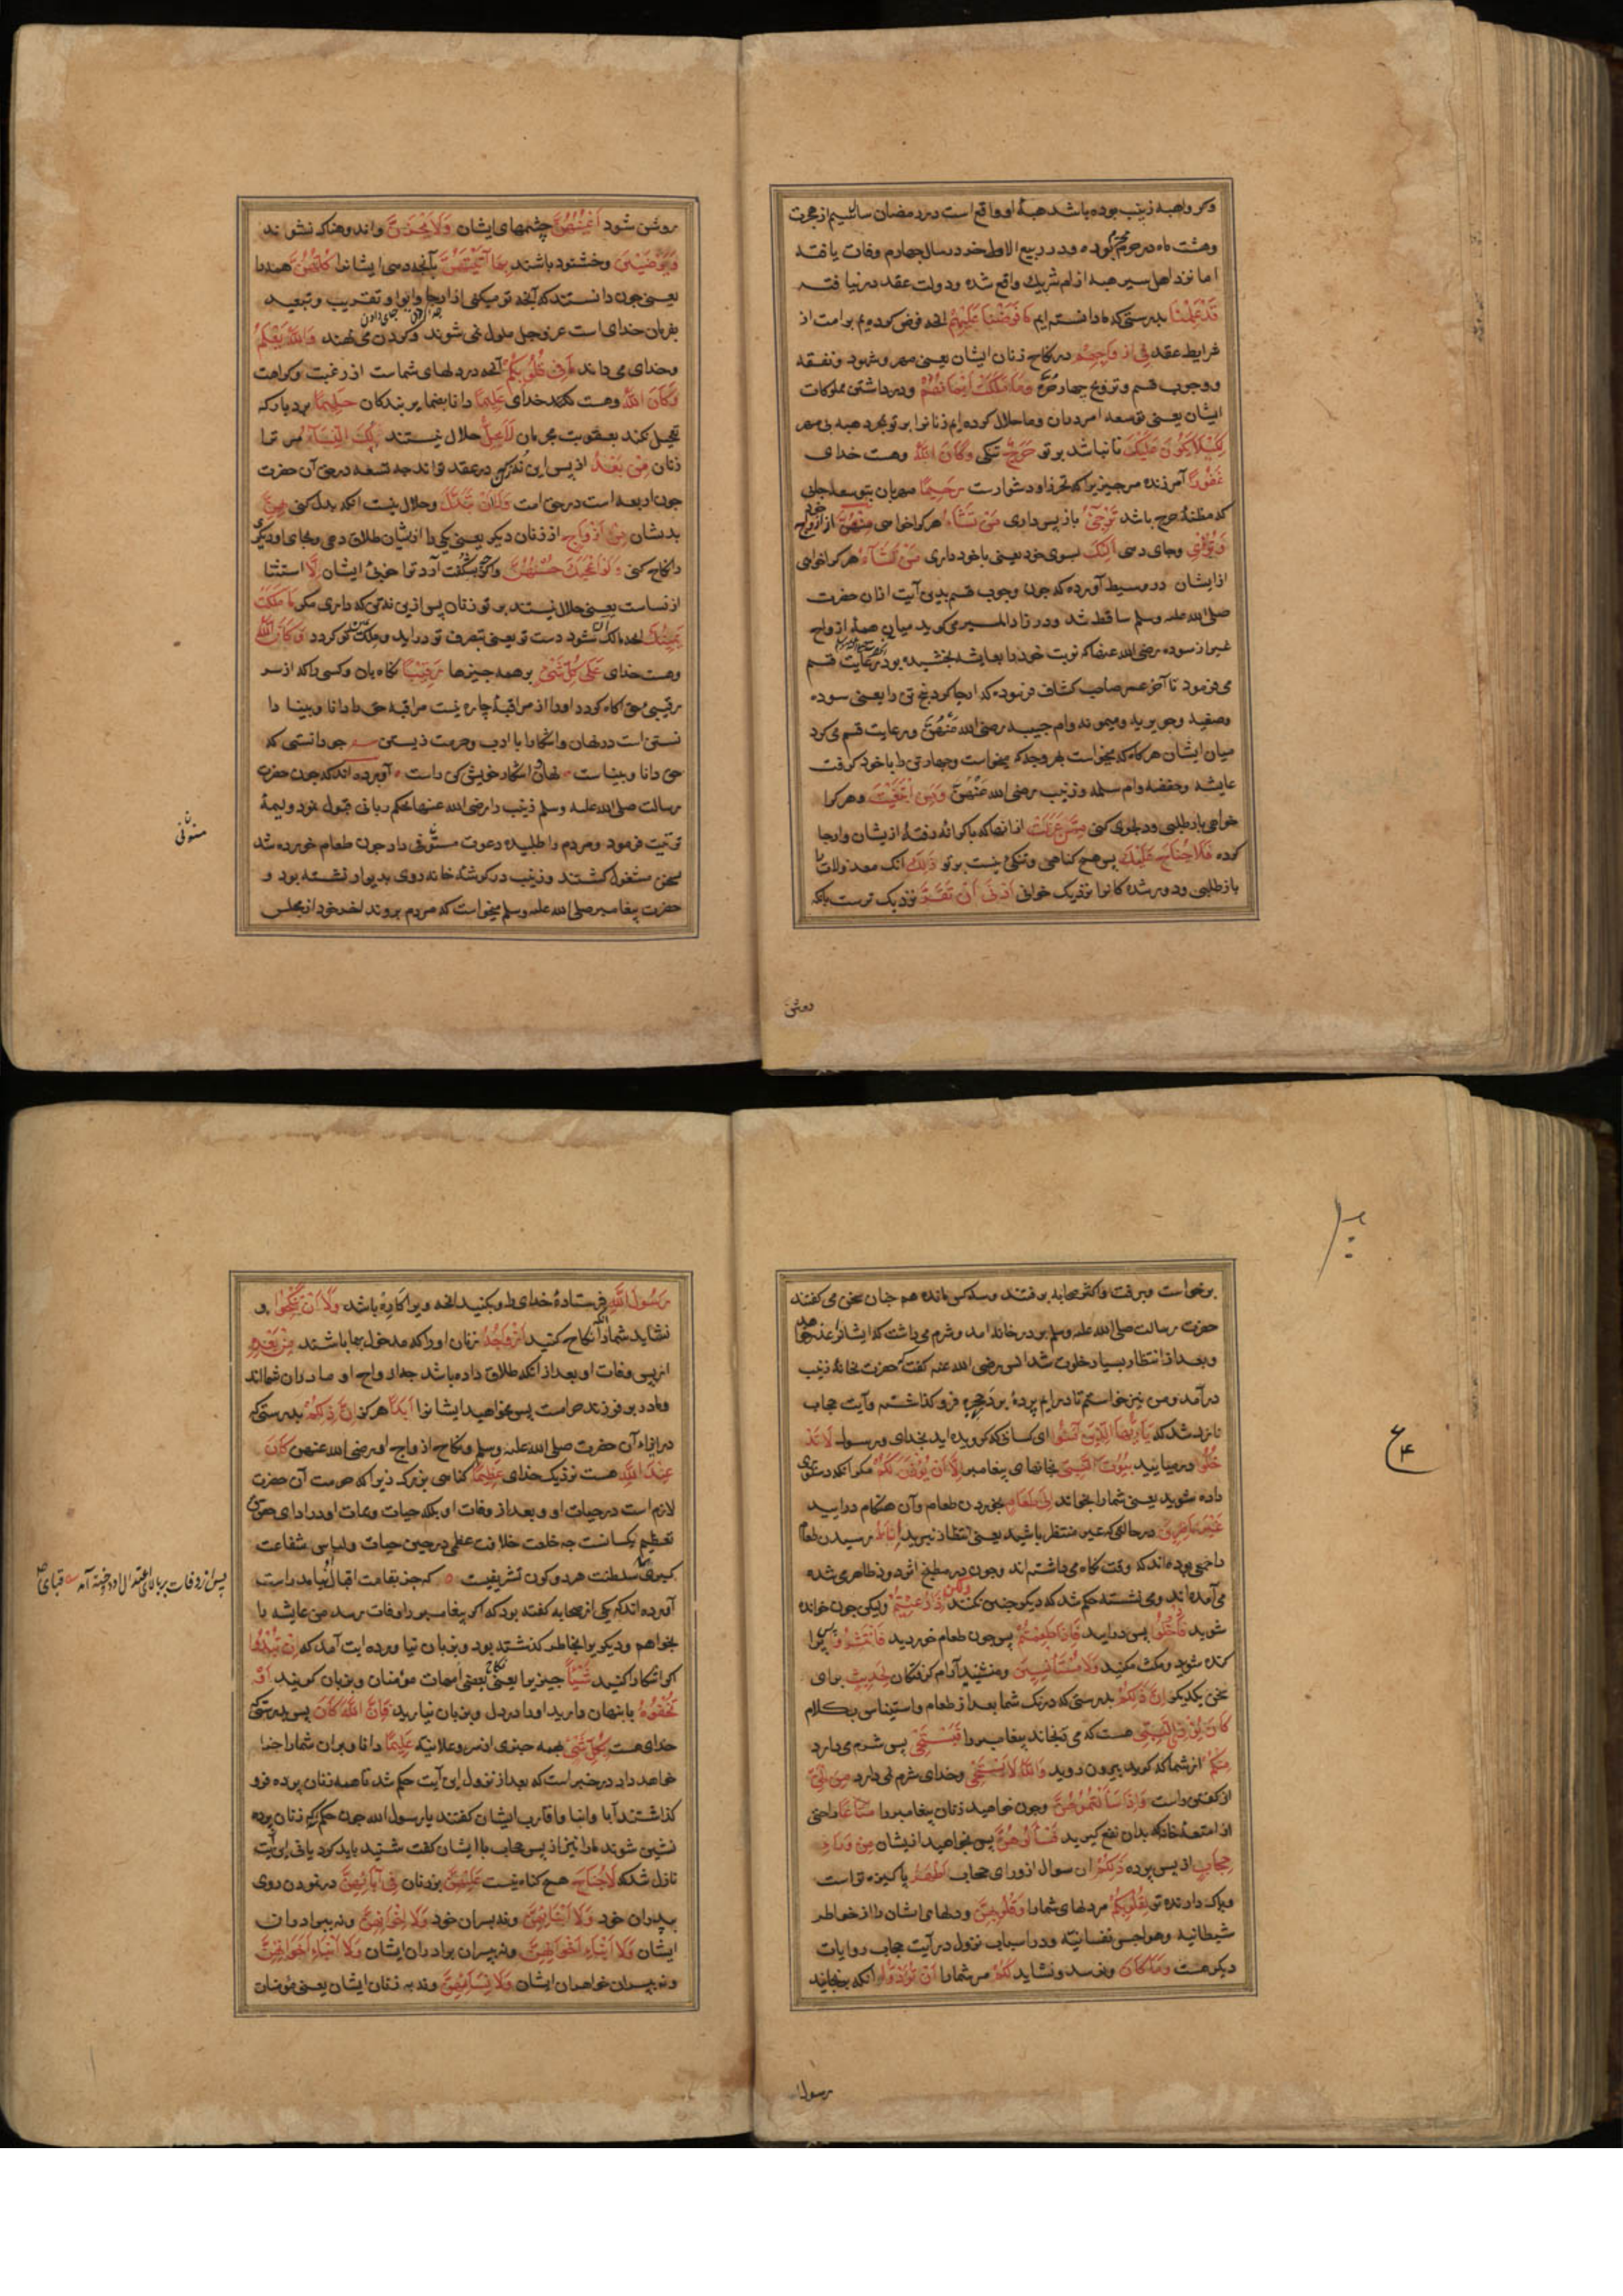 وکر واهبه زینب بوده باشد هبهٔ او واقع است در رمضان سال سیم از هجرت
وهشت ماه در حرم محترم بوده و در ربیع الاول خود در سال چهارم وفات یافته
اما نزد اهل سیر هبه از ام شریک واقع شده ودولت عقد در نیافته
قَدْ عَلِمْنَا بدرستی که ما دانسته ایم مَا فَرَضْنَا عَلَيْهِمْ انچه فرض کرده ایم بر امت از
شرایط عقد فِي أَزْوَاجِهِمْ در نکاح زنان ایشان یعنی مهر وشهود ونفقه
ووجوب قسم وتزوج چهار حرّه وَمَا مَلَكَتْ أَيْمَانُهُمْ ودر داشتن مملوکات
ایشان یعنی توسعه امر در آن وما حلال کرده ایم زنانرا بر تو بمجرد هبه بی مهر
لِكَيْلَا يَكُونَ عَلَيْكَ تا نباشد بر تو حَرَجٌ تنکی وَكَانَ اللَّهُ وهست خدای
غَفُورًا آمرزنده مر چیزیرا که تحرز ازو دشوارست رَحِيمًا مهربان بتوسعه جای
که مظنهٔ حرج باشد تُرْجِي باز پس داری مَنْ تَشَاءُ هر کرا خواهی مِنْهُنَّ از ازواج خود
وَتُؤْوِي وجای دهی إِلَيْكَ بسوی خود یعنی با خود داری مَنْ تَشَاءُ هر کرا خواهی
از ایشان در وسیط آورده که چون وجوب قسم بدین آیت از ان حضرت
صلی الله علیه وسلم ساقط شد ودر زاد المسیر می کوید میان همهٔ ازواج
غیر از سوده رضی الله عنها که نوبت خود را بعایشه بخشیده بود رعایت قسم
می فرمود تا آخر عمر صاحب کشاف فرموده که ارجا کرد پنج تن را یعنی سوده
وصفیه وجویریه ومیمونه وام حبیبه رضی الله عَنْهُنَّ ورعایت قسم می کرد
میان ایشان هرکاه که میخواست بهر وجه که میخواست وچهار تن را با خود کرفت
عایشه وحفصه وام سلمه وزینب رضی الله عَنْهُنَّ وَمَنِ ابْتَغَيْتَ وهر کرا
خواهی باز طلبی ودعوی کنی مِمَّنْ عَزَلْتَ از انها که با کرانه رفتهٔ از یشان وارجا
کرده فَلَا جُنَاحَ عَلَيْكَ پس هیچ کناهی وتنکی نیست بر تو ذَٰلِكَ انک معزولات را
باز طلبی ودور شده کانرا نزدیک خوانی أَدْنَىٰ أَنْ تَقَرَّ نزدیک ترست بانکه
روشن
روشن شود أَعْيُنُهُنَّ چشمهای ایشان وَلَا يَحْزَنَّ واندوهناک نشوند
وَيَرْضَيْنَ وخشنود باشند بِمَا آتَيْتَهُنَّ بآنچه دهی ایشانرا كُلُّهُنَّ همه را
یعنی چون دانستند که آنچه تو میکنی از ارجا وایوا وتقریب وتبعید
بفرمان خدای است عز وجل ملول نمی شوند وکردن می نهند وَاللَّهُ يَعْلَمُ
وخدای می داند مَا فِي قُلُوبِكُمْ آنچه در دلهای شماست از رغبت وکراهت
وَكَانَ اللَّهُ وهست خدای عَلِيمًا دانا بضمایر بندکان حَلِيمًا بردبار که
تعجیل نکند بعقوبت مجرمان لَا يَحِلُّ حلال نیستند لَكَ النِّسَاءُ مر ترا
زنان مِنْ بَعْدُ از پس این نُه زن که در عقد تواند چه تسعه در حق آن حضرت
چون اربعه است در حق امت وَلَا أَنْ تَبَدَّلَ وحلال نیست انکه بدل کنی بِهِنَّ
بدیشان مِنْ أَزْوَاجٍ از زنان دیکر یعنی یکی را از یشان طلاق دهی وبجای او دیکری
را نکاح کنی وَلَوْ أَعْجَبَكَ حُسْنُهُنَّ وکرچه بشکفت آرد ترا خوبی ایشان إِلَّا استثنا
از نساست یعنی حلال نیستند بر تو زنان پس از ین نه زن که داری مکر مَا مَلَكَتْ
يَمِينُكَ انچه مالک آن شود دست تو یعنی بتصرف تو دراید وملک تو کردد وَكَانَ اللَّهُ
وهست خدای عَلَىٰ كُلِّ شَيْءٍ بر همه چیزها رَقِيبًا نکاهبان وکسی را که از سر
رقیبی حق آکاه کردد اورا از مراقبهٔ چاره نیست مراقبه حق را دانا وبینا دا
نستن است در نهان واشکارا با ادب وحرمت زیستن چو دانستی که
حق دانا وبیناست نهان واشکار خویش کن راست آورده اند که چون حضرت
رسالت صلی الله علیه وسلم زینب را رضی الله عنها بحکم ربانی قبول نمود ولیمهٔ
ترتیب فرمود ومردم را طلبیده دعوت مستوفی داد چون طعام خورده شد
بسخن مشغول کشتند وزینب در کوشهٔ خانه روی بدیوار نشسته بود و
حضرت پیغامبر صلی الله علیه وسلم میخواست که مردم بروند اخر خود از مجلس
مستوفی
برخواست وبرفت واکثر صحابه برفتند وسه کس مانده هم چنان سخن می کفتند
حضرت رسالت صلی الله علیه وسلم بر در خانه امد وشرم می داشت که ایشانرا عذر خواهد
وبعد از انتظار بسیار خلوت شد انس رضی الله عنه کفت که حضرت بخانهٔ زینب
درآمد ومن نیز خواستم تا درایم پردهٔ بر در حجره فرو کذاشت وآیت حجاب
نازل شد که يَا أَيُّهَا الَّذِينَ آمَنُوا ای کسانی که کرویده اید بخدای ورسول لَا تَدْ
خُلُوا درمیایید بُيُوتَ النَّبِيِّ بخانهای پیغامبر إِلَّا أَنْ يُؤْذَنَ لَكُمْ مکر انکه دستوری
داده شوید یعنی شمارا بخوانند إِلَىٰ طَعَامٍ بخوردن طعام وآن هنکام درایید
غَيْرَ نَاظِرِينَ در حالتی که غیر منتظر باشید یعنی انتظار نبرید إِنَاهُ رسیدن طعام
را جمعی بوده اند که وقت نکاه می داشته اند وچون در مطبخ اثر دود ظاهر می شده
می آمده اند ومی نشسته حکم شد که دیکر چنین نکنند وَلَٰكِنْ إِذَا دُعِيتُمْ ولیکن چون خوانده
شوید فَادْخُلُوا پس درایید فَإِذَا طَعِمْتُمْ پس چون طعام خوردید فَانْتَشِرُوا پس پرا
کنده شوید ومکث مکنید وَلَا مُسْتَأْنِسِينَ ومنشینید آرام کرفتکان لِحَدِيثٍ برای
سخن یکدیکر إِنَّ ذَٰلِكُمْ بدرستی که درنک شما بعد از طعام واستیناس بکلام
كَانَ يُؤْذِي النَّبِيَّ هست که می رنجاند پیغامبر را فَيَسْتَحْيِي پس شرم می دارد
مِنْكُمْ از شما که کوید بیرون روید وَاللَّهُ لَا يَسْتَحْيِي وخدای شرم نمی دارد مِنَ الْحَقِّ
از کفتن راست وَإِذَا سَأَلْتُمُوهُنَّ وچون خواهید زنان پیغامبر را مَتَاعًا متاعی
از امتعهٔ خانه که بدان نفع کیرید فَاسْأَلُوهُنَّ پس بخواهید از یشان مِنْ وَرَاءِ
حِجَابٍ از پس پرده ذَٰلِكُمْ ان سوال از ورای حجاب أَطْهَرُ پاکیزه تر است
وپاک دارنده تر لِقُلُوبِكُمْ مر دلهای شمارا وَقُلُوبِهِنَّ ودلهای ایشان را از خواطر
شیطانیه وهواجس نفسانیه ودر اسباب نزول در آیت حجاب روایات
دیکر هست وَمَا كَانَ ونرسد ونشاید لَكُمْ مر شمارا أَنْ تُؤْذُوا انکه برنجانید
رسول
رَسُولَ اللَّهِ فرستادهٔ خدای را وبکنید انچه ویرا کاره باشد وَلَا أَنْ تَنْكِحُوا و
نشاید شمارا آنکه نکاح کنید أَزْوَاجَهُ زنان اورا که مدخول بها باشند مِنْ بَعْدِهِ
از پس وفات او بعد از انکه طلاق داده باشد چه ازواج او مادران شمااند
ومادر بر فرزند حرام است پس مخواهید ایشانرا أَبَدًا هرکز إِنَّ ذَٰلِكُمْ بدرستی که
در ایذاء آن حضرت صلی الله علیه وسلم ونکاح ازواج او رضی الله عنهن كَانَ
عِنْدَ اللَّهِ هست نزدیک خدای عَظِيمًا کناهی بزرک زیرا که حرمت آن حضرت
لازم است در حیات او وبعد از وفات او بلکه حیات وممات او در ادای حقوق
تعظیم یکسانست چه خلعت خلافت عظمی در حین حیات ولباس شفاعت
کبری سلطنت هر دو کون تشریفیست که جز بقامت اقبال او نیامد راست
آورده اند که یکی از صحابه کفته بود که اکر پیغامبر را وفات رسد من عایشه را
بخواهم ودیکریرا بخاطر کذشته بود وبزبان نیاورده ایت آمد که إِنْ تُبْدُوا
اکر اشکارا کنید شَيْئًا چیزیرا یعنی نکاح بعضی امهات مؤمنان وبزبان کویید أَوْ
تُخْفُوهُ یا پنهان دارید اورا در دل وبزبان نیارید فَإِنَّ اللَّهَ كَانَ پس بدرستی که
خدای هست بِكُلِّ شَيْءٍ بهمه چیزی از سر وعلانیه عَلِيمًا دانا وبران شمارا جزا
خواهد داد در خبر است که بعد از نزول این آیت حکم شد تا همه زنان پرده فرو
کذاشتند آبا وابنا واقارب ایشان کفتند یا رسول الله چون حکم که زنان پرده
نشین شوند مارا نیز از پس حجاب با ایشان کفت شنید باید کرد یا نی این آیت
نازل شد که لَا جُنَاحَ هیچ کناه نیست عَلَيْهِنَّ بر زنان فِي آبَائِهِنَّ در نمودن روی
بپدران خود وَلَا أَبْنَائِهِنَّ ونه بپسران خود وَلَا إِخْوَانِهِنَّ ونه ببرادران
ایشان وَلَا أَبْنَاءِ إِخْوَانِهِنَّ ونه بپسران برادران ایشان وَلَا أَبْنَاءِ أَخَوَاتِهِنَّ
ونه بپسران خواهران ایشان وَلَا نِسَائِهِنَّ ونه به زنان ایشان یعنی مؤمنان